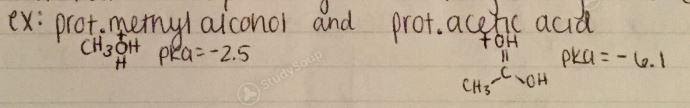 ex: prot. methyl alcohol and prot. acetic acid
CH3OH pka = -2.5
+
H
+OH
||
C
CH3 OH pka = -6.1
StudySoup